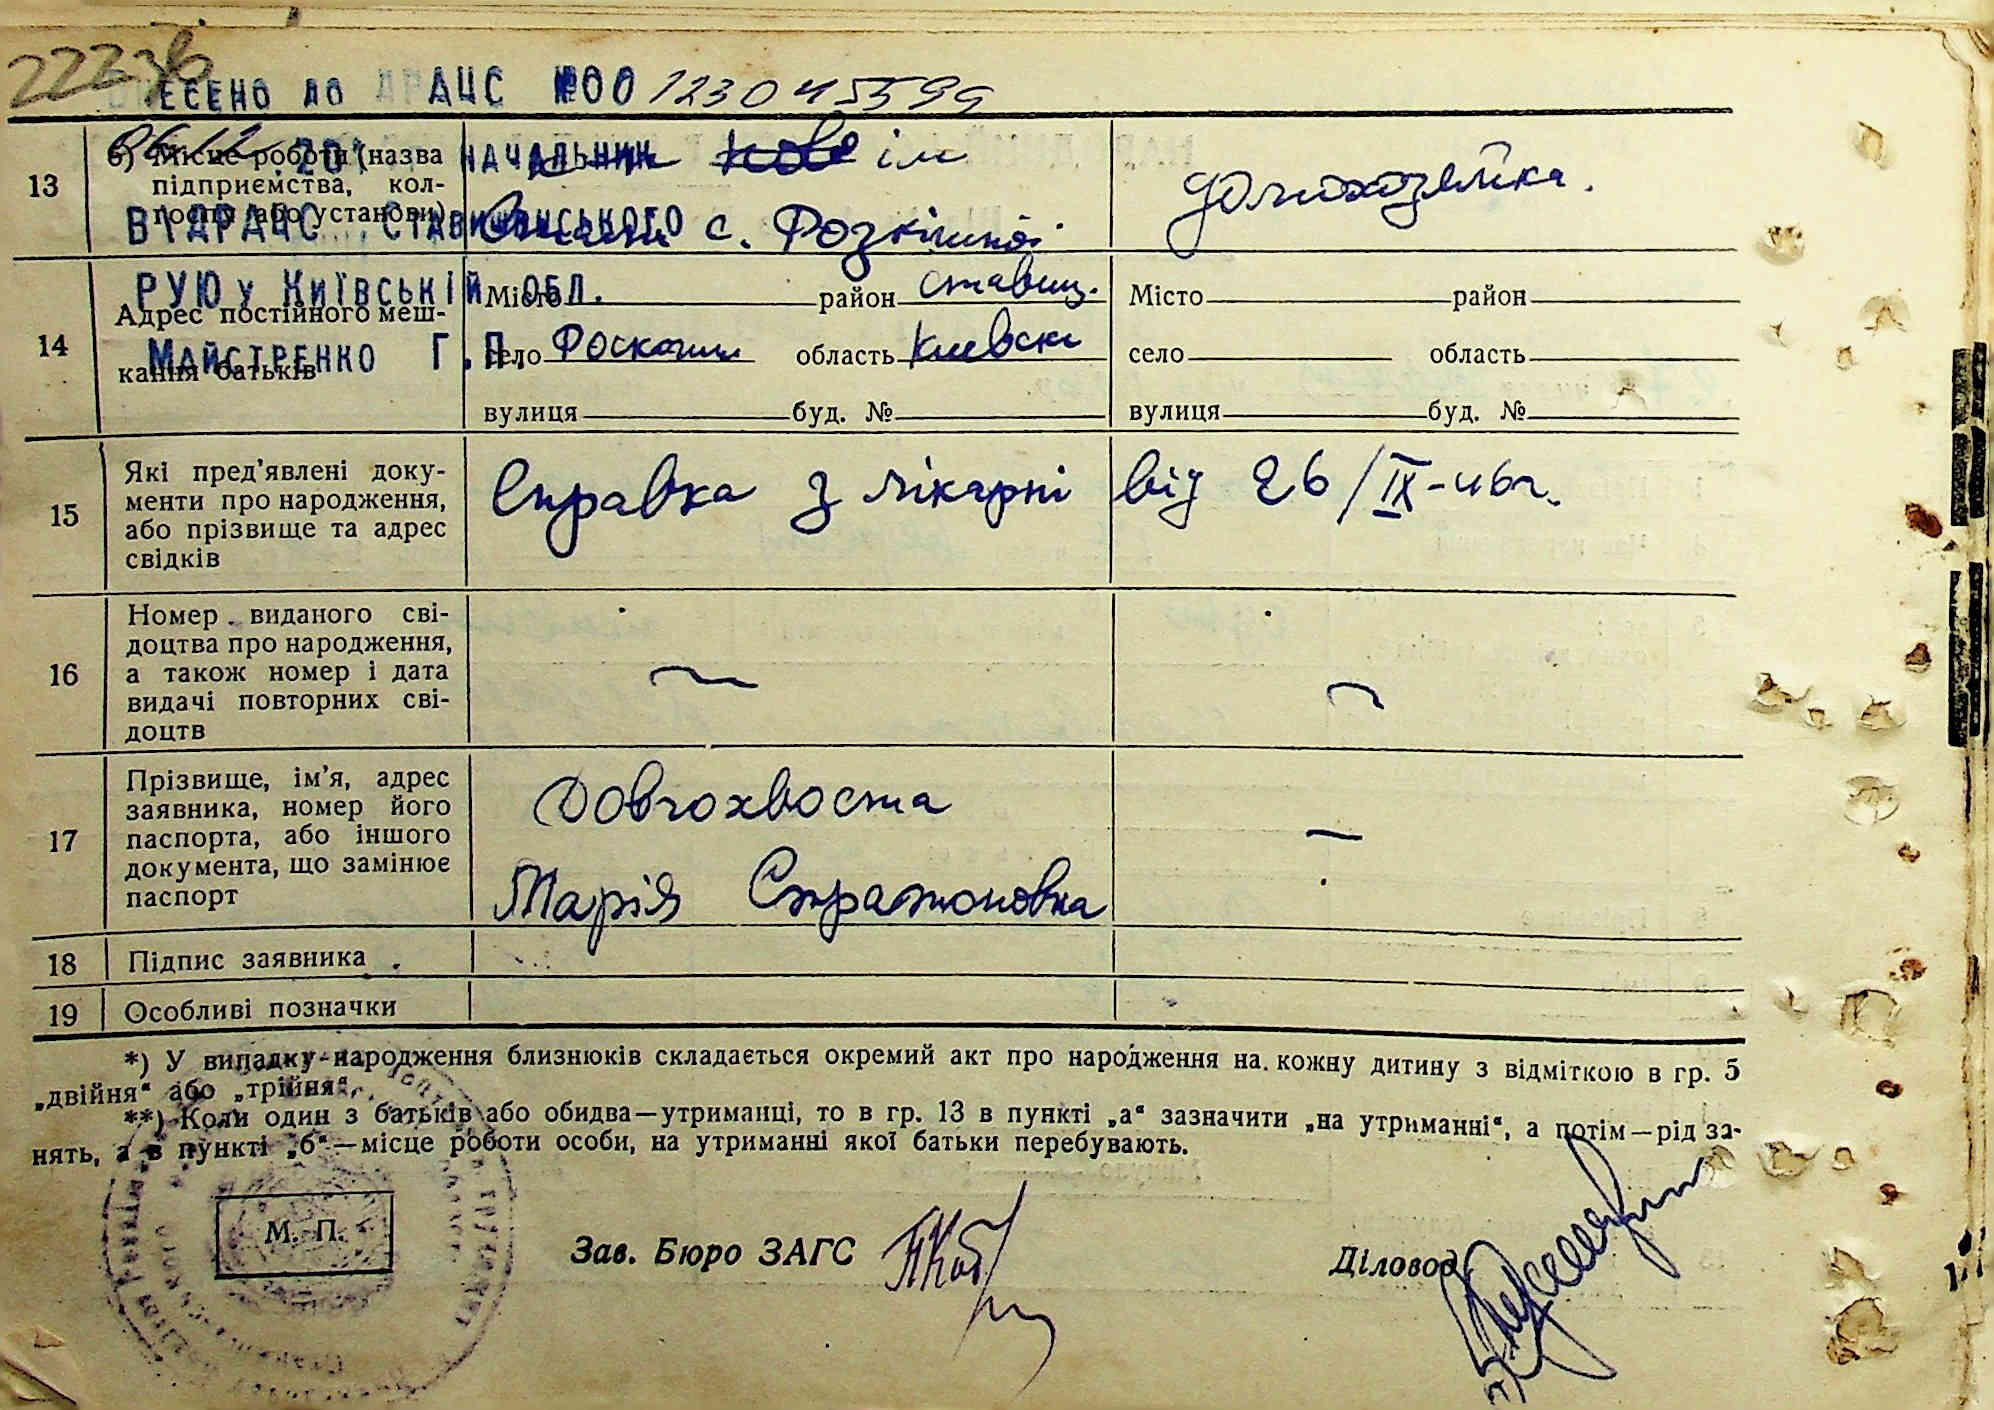 22236
ВНЕСЕНО ДО ДРАЦС №00 123045599
06.12. 201 НАЧАЛЬНИК
ВІДРАЦС СТАВИЩЕНСЬКОГО
РУЮ у КИЇВСЬКІЙ ОБЛ.
МАЙСТРЕНКО Г.П.
13 б) Місце роботи (назва підприємства, кол-
госпу або установи) ім
с. Розкішної домохозяйка.
14 Адрес постійного меш-
кання батьків
Місто район Ставищ. Місто район
село Роскошна область Киевска село область
вулиця буд. № вулиця буд. №
15 Які пред’явлені доку-
менти про народження,
або прізвище та адрес
свідків
Справка з лікарні від 26/IX-46г.
16 Номер виданого сві-
доцтва про народження,
а також номер і дата
видачі повторних сві-
доцтв
— —
17 Прізвище, ім’я, адрес
заявника, номер його
паспорта, або іншого
документа, що замінює
паспорт
Довгохвоста —
Марія Стратоновна
18 Підпис заявника
19 Особливі позначки
*) У випадку народження близнюків складається окремий акт про народження на кожну дитину з відміткою в гр. 5
„двійня“ або „трійня“.
**) Коли один з батьків або обидва—утриманці, то в гр. 13 в пункті „а“ зазначити „на утриманні“, а потім—рід за-
нять, а в пункті „б“—місце роботи особи, на утриманні якої батьки перебувають.
М. П.
Зав. Бюро ЗАГС Діловод